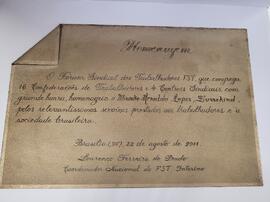 Homenagem
O Fórum Sindical dos Trabalhadores FST, que congrega
16 Confederações de Trabalhadores e 4 Centrais Sindicais com
grande honra, homenageia o Ministro Arnaldo Lopes Sussekind,
pelos relevantíssimos serviços prestados aos trabalhadores e à
sociedade brasileira.
Brasília (DF), 22 de agosto de 2011.
Lourenço Ferreira do Prado
Coordenador Nacional do FST Interino